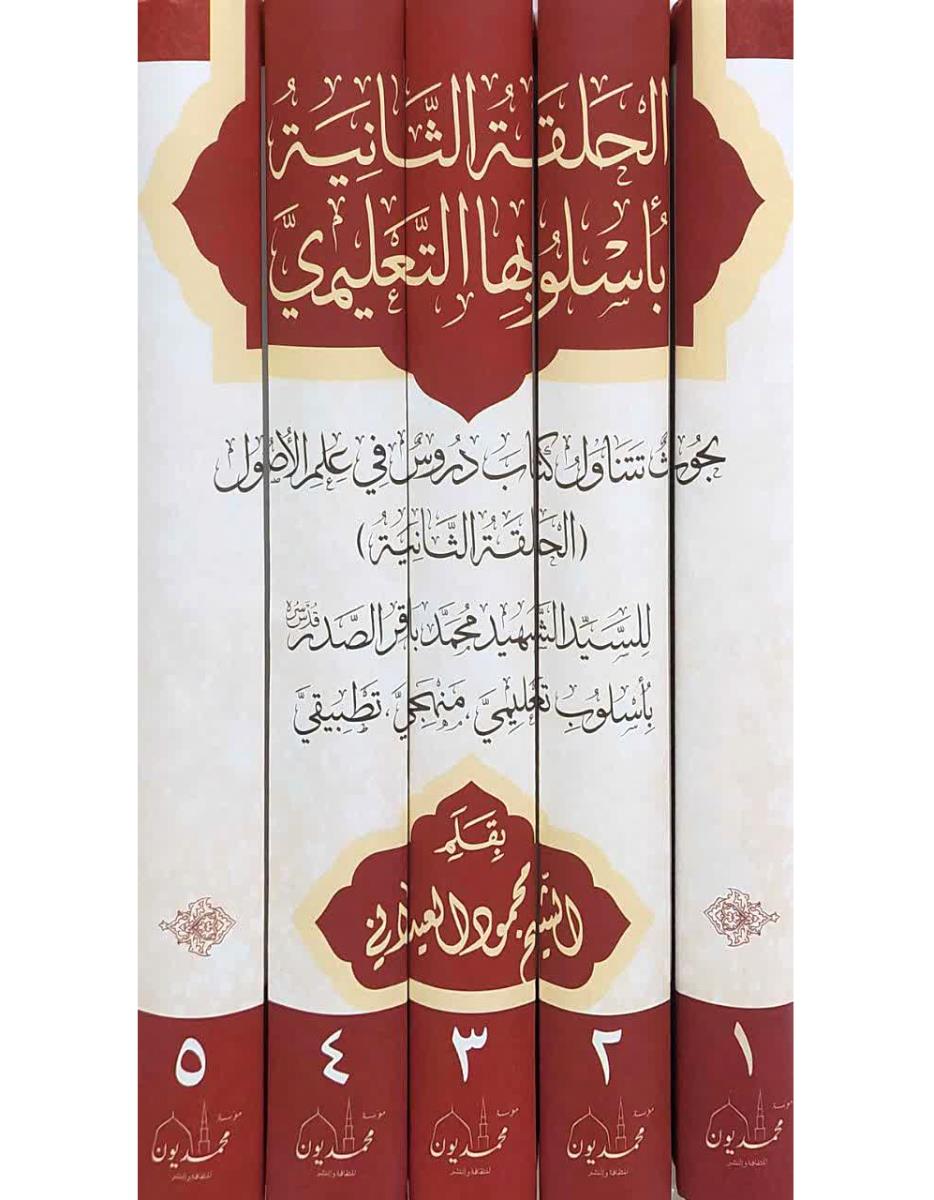 الحَلقَةُ الثَّانِيَةُ
بأُسْلوُبِها التَّعْليمِيَّ
بحُوثٌ تتَناوَلُ كتابَ دُروسٌ في عِلمِ الأصُول
(الحَلقَةُ الثَّانِيَةُ)
للسَيِّد الشَّهيد محُمَّد باقر الصَّدر قُدِّسَ سِرُّه
بأُسلوُبٍ تَعْليميَّ، مَنهَجيَّ، تَطْبيقيَّ
بِقَلَمِ
الشَّيخ محمود العيداني
١ ٢ ٣ ٤ ٥
مؤسسة
محمديون
للثقافة والنشر
مؤسسة
محمديون
للثقافة والنشر
مؤسسة
محمديون
للثقافة والنشر
مؤسسة
محمديون
للثقافة والنشر
مؤسسة
محمديون
للثقافة والنشر